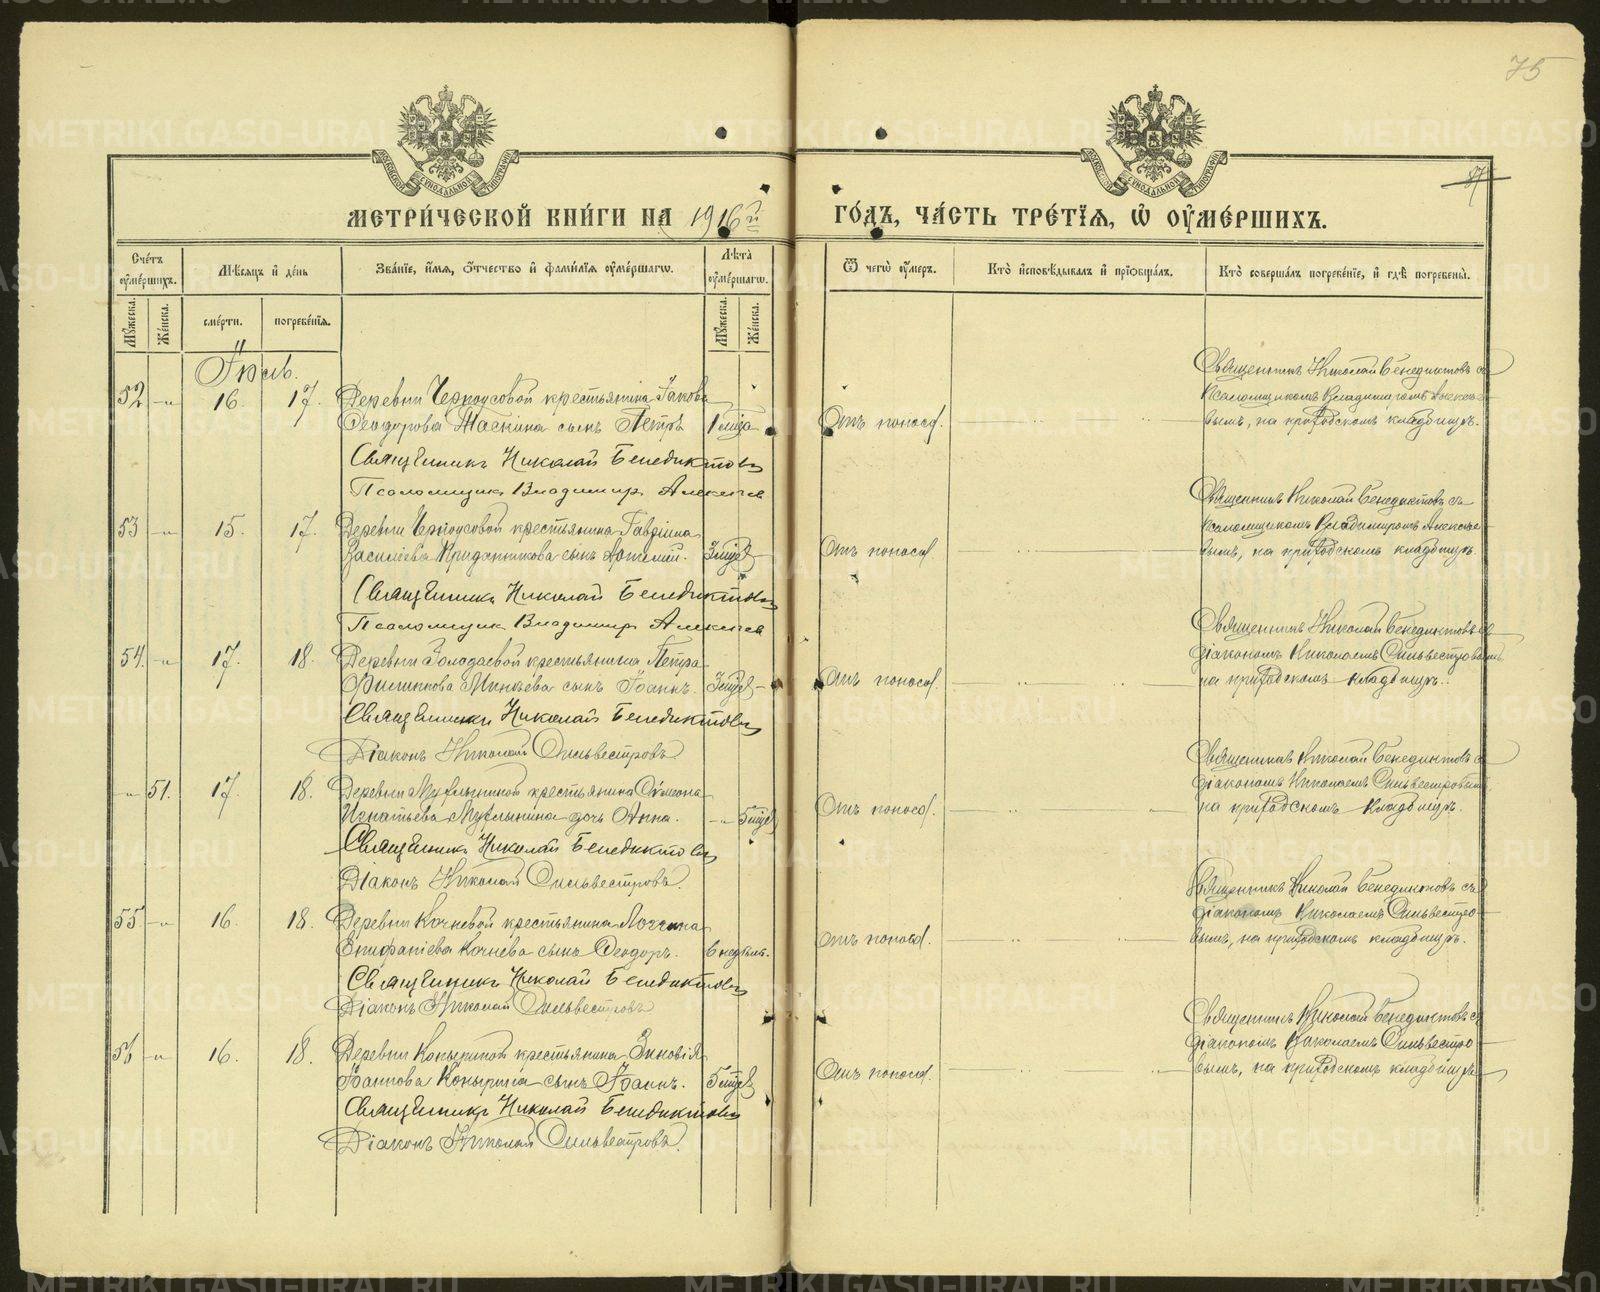 75
87
МЕТРИ́ЧЕСКОЙ КНИ́ГИ НА 1916й
ГО́ДЪ, ЧА́СТЬ ТРЕ́ТІѦ, Ѡ҆ ОУ҆МЕ́РШИХЪ.
Сче́тъ оу҆ме́ршихъ.
Мѣсяцъ и҆ де́нь
Зва́ніе, и҆́мя, ѻ҆́тчество и҆ фами́лія оу҆ме́ршагѡ.
Лѣ́та оу҆ме́ршагѡ.
Ѿ чегѡ̀ оу҆́меръ.
Кто̀ и҆сповѣ́дывалъ и҆ прїѡбща́лъ.
Кто̀ соверша́лъ погребе́ніе, и҆ гдѣ̀ погребены̀.
Мꙋ́жеска.
Же́нска.
сме́рти.
погребе́нія.
Мꙋ́жеска.
Же́нска.
Іюль.
52 -„- 16. 17. Деревни Черноусовой крестьянина Іакова
Ѳеодорова сынъ Петръ
Священникъ Николай Бенедиктовъ
Псаломщикъ Владимиръ
Отъ поноса.
Священникъ Николай Бенедиктовъ съ
Псаломщикомъ Владимиромъ
вымъ, на приходскомъ кладбищѣ.
53 -„- 15. 17. Деревни Черноусовой крестьянина Гавріила
Василіева сынъ Артемій. 3 мѣс.
Священникъ Николай Бенедиктовъ
Псаломщикъ Владимиръ
Отъ поноса.
Священникъ Николай Бенедиктовъ съ
Псаломщикомъ Владимиромъ
вымъ, на приходскомъ кладбищѣ.
54. -„- 17. 18. Деревни крестьянина Петра
Филиппова сынъ Іоаннъ.
Священникъ Николай Бенедиктовъ
Діаконъ Николай Сильвестровъ
Отъ поноса.
Священникъ Николай Бенедиктовъ съ
діакономъ Николаемъ Сильвестровымъ
на приходскомъ кладбищѣ.
-„- 51. 17. 18. Деревни крестьянина Симеона
Игнатьева дочь Анна. -„-
Священникъ Николай Бенедиктовъ
Діаконъ Николай Сильвестровъ.
Отъ поноса.
Священникъ Николай Бенедиктовъ съ
діакономъ Николаемъ Сильвестровымъ
на приходскомъ кладбищѣ.
55 -„- 16. 18. Деревни Кочневой крестьянина Логгина
Епифаніева Кочнева сынъ Ѳеодоръ. 6 недѣль.
Священникъ Николай Бенедиктовъ
Діаконъ Николай Сильвестровъ
Отъ поноса.
Священникъ Николай Бенедиктовъ съ
діакономъ Николаемъ Сильвестро-
вымъ, на приходскомъ кладбищѣ.
56 -„- 16. 18. Деревни Копыриной крестьянина Зиновія
Іоаннова Копырина сынъ Іоаннъ.
Священникъ Николай Бенедиктовъ
Діаконъ Николай Сильвестровъ.
Отъ поноса.
Священникъ Николай Бенедиктовъ съ
діакономъ Николаемъ Сильвестро-
вымъ, на приходскомъ кладбищѣ.
METRIKI.GASO-URAL.RU